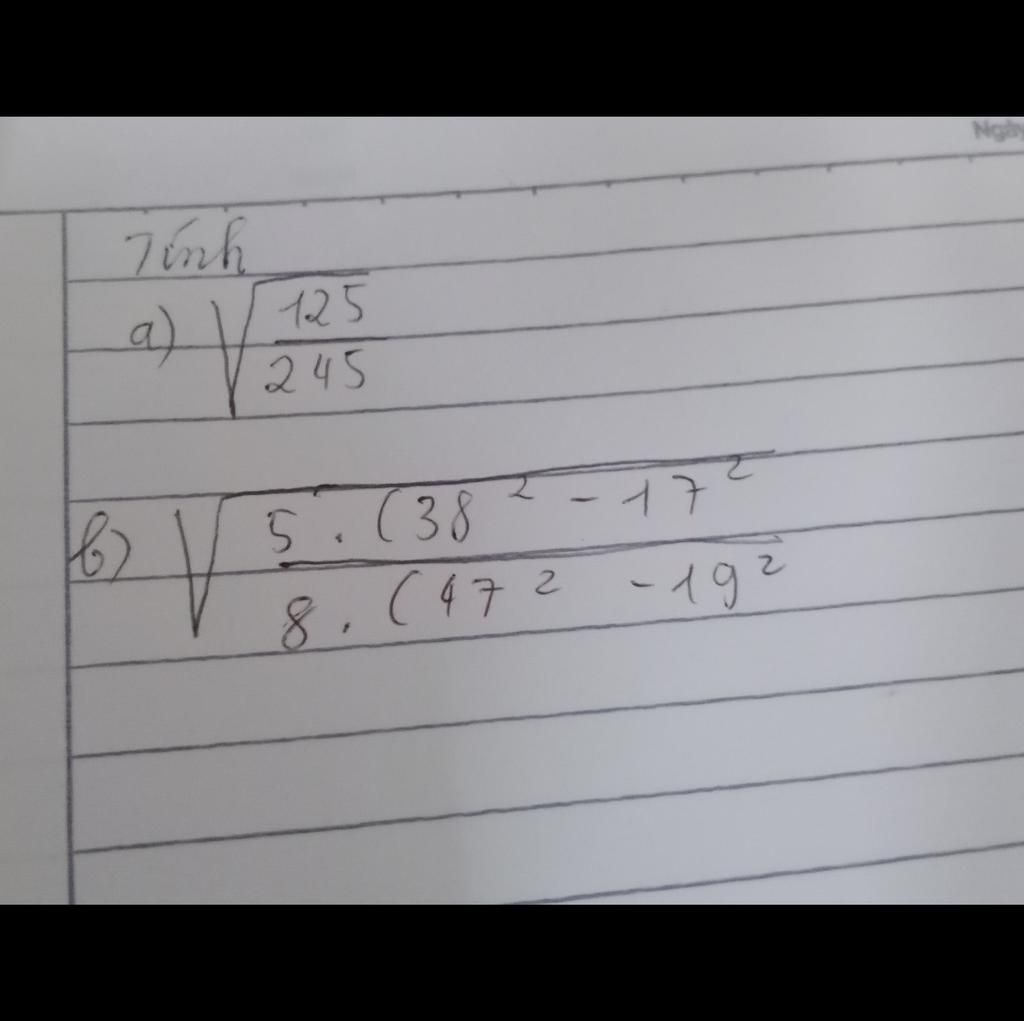 Ngày
Tính
a) √(125/245)
b) √(5 . (38² - 17²/8 . (47² - 19²)